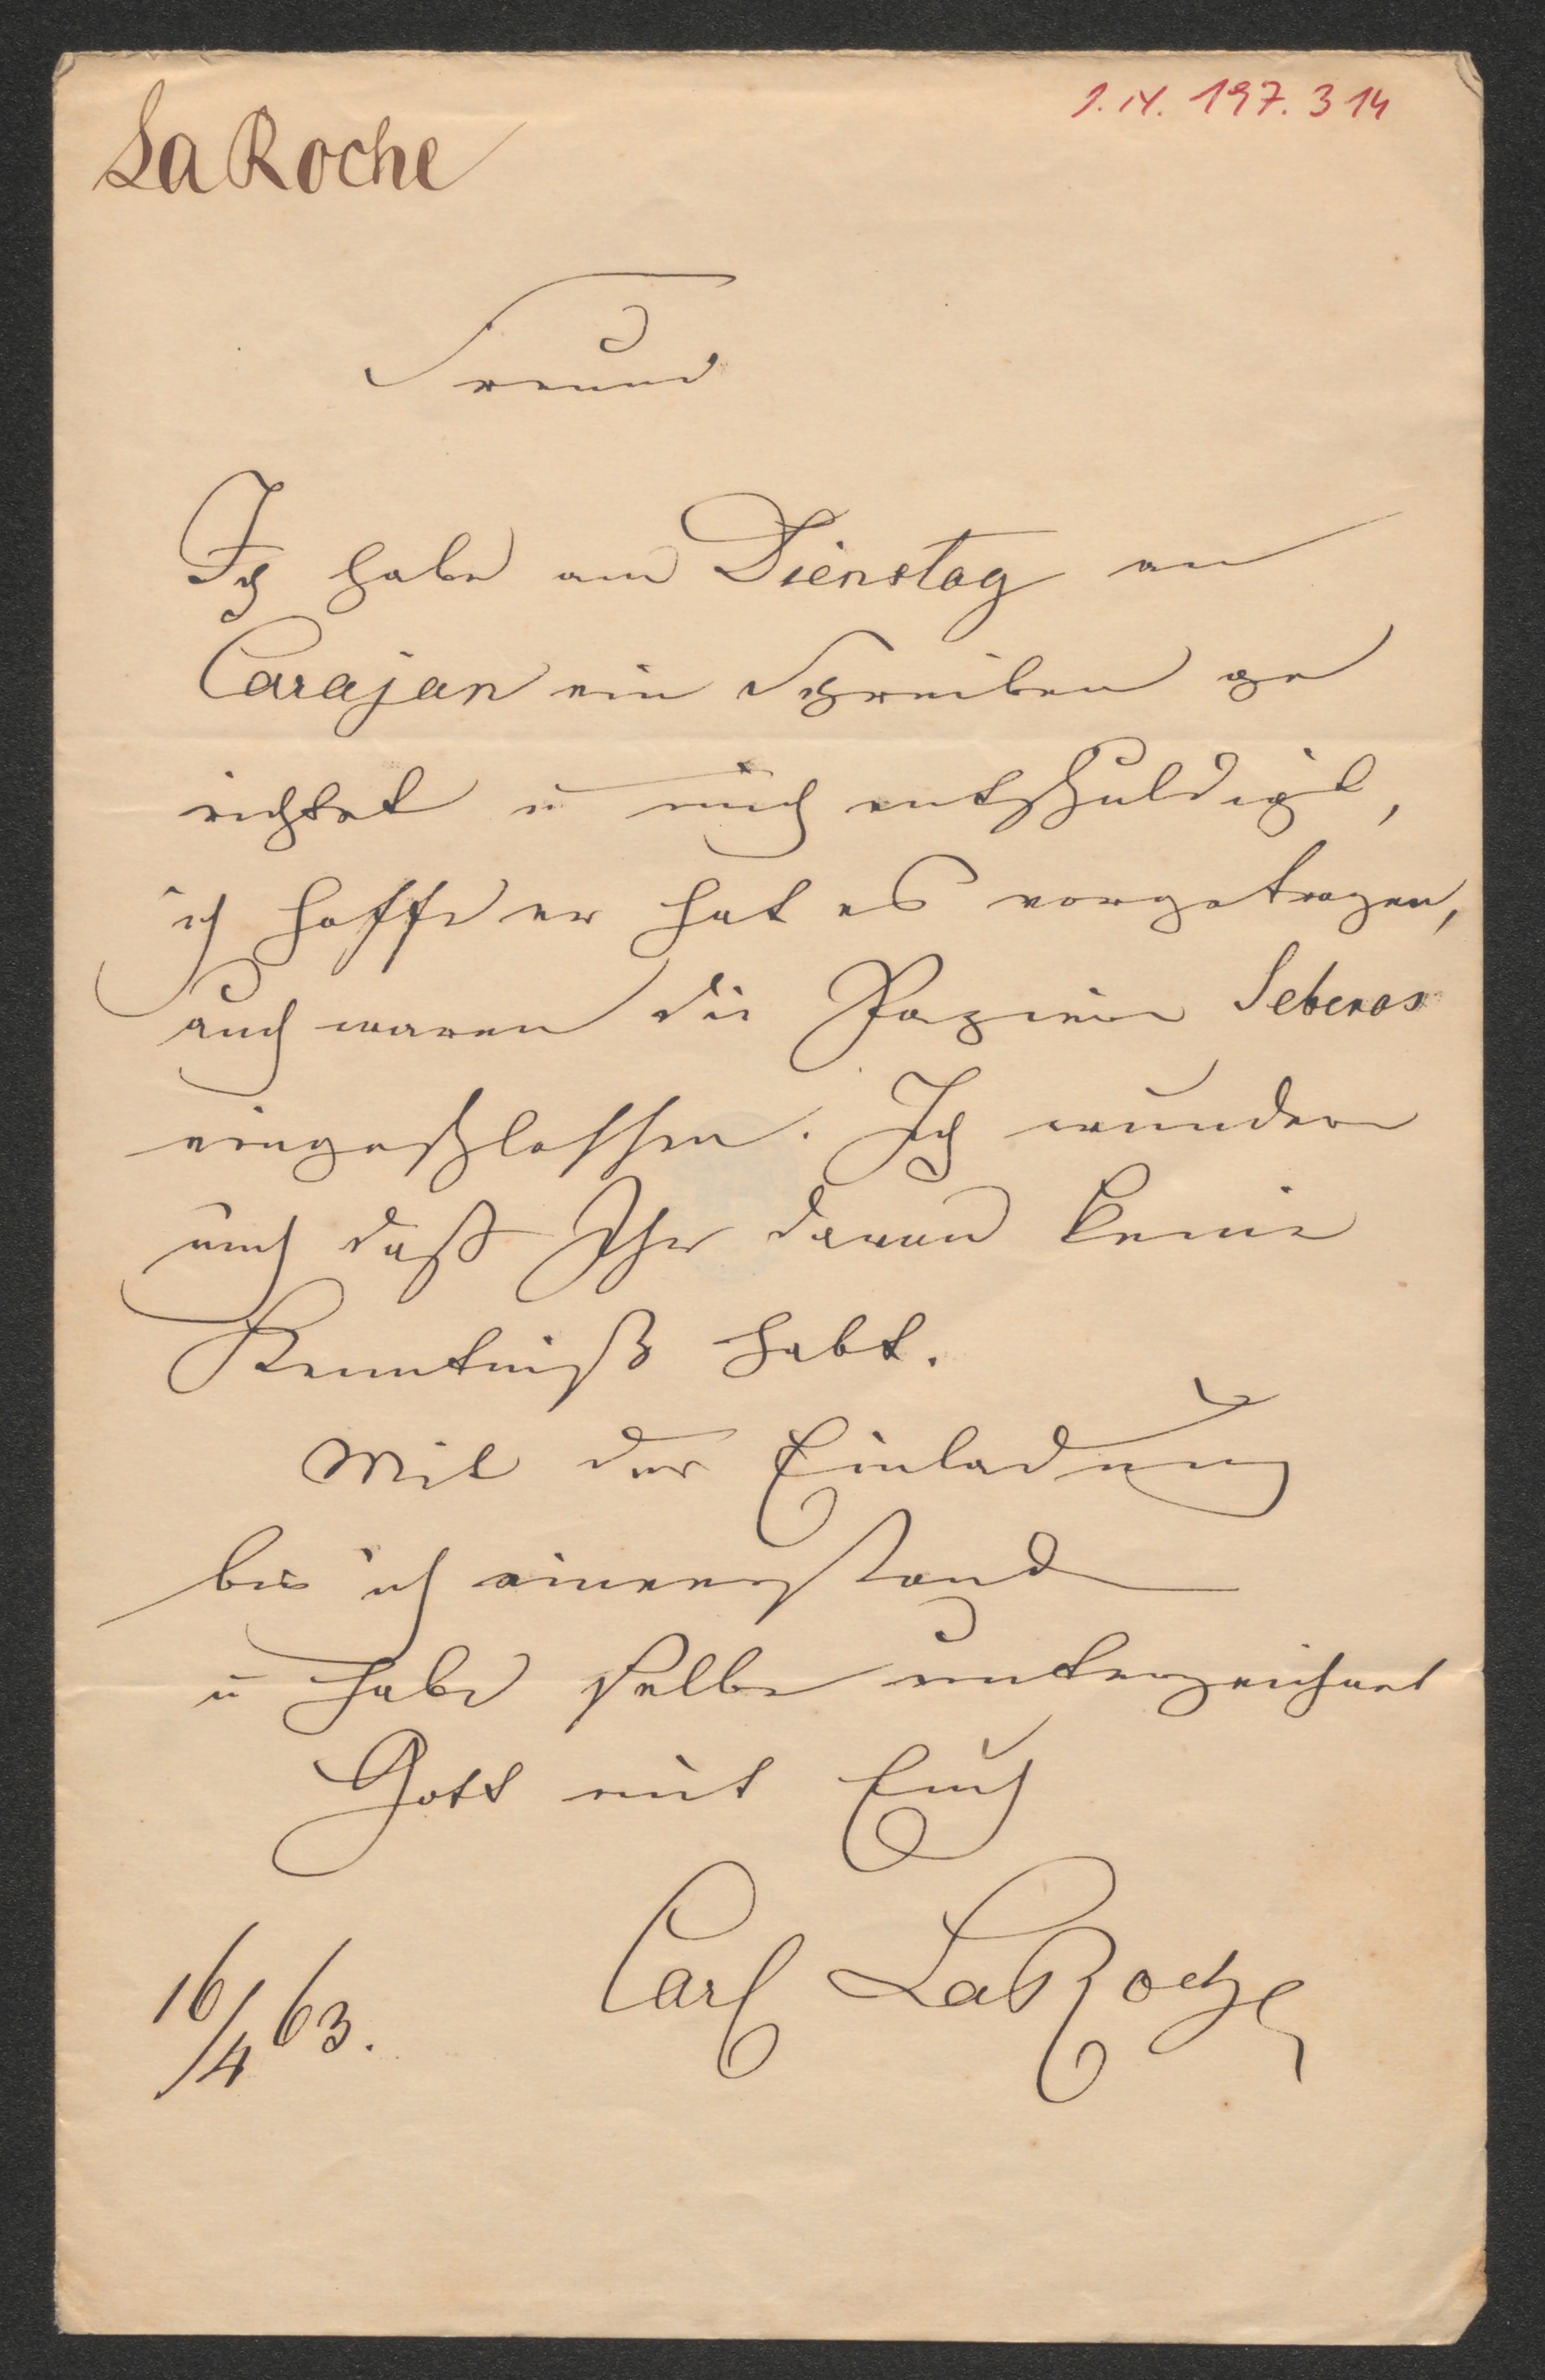 I.N. 197.314
La Roche
Freund
Ich habe am Dienstag an
Carajan ein Schreiben ge
richtet u mich entschuldigt,
ich hoffe er hat es vorgetragen,
auch waren die Papiere
eingeschlossen. Ich wundere
mich daß Ihr davon keine
Kenntniß habt.
Mit der Einladung
bin ich einverstanden
u habe selbe unterzeichnet
Gott mit Euch
Carl LaRoche
16/4 63.